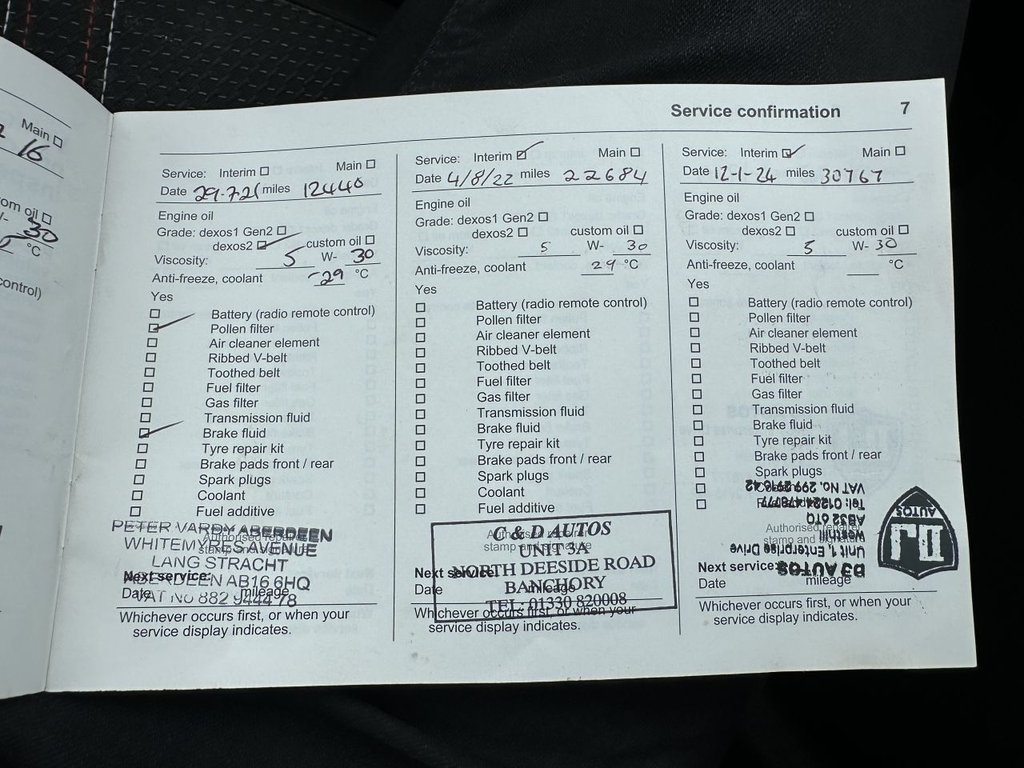 Main
16
om oil
30
°C
ontrol)
Service confirmation 7
Service: Interim Main
Date 29-7-21 miles 12440
Engine oil
Grade: dexos1 Gen2
dexos2 custom oil
Viscosity: 5 W- 30
Anti-freeze, coolant -29 °C
Yes
Battery (radio remote control)
Pollen filter
Air cleaner element
Ribbed V-belt
Toothed belt
Fuel filter
Gas filter
Transmission fluid
Brake fluid
Tyre repair kit
Brake pads front / rear
Spark plugs
Coolant
Fuel additive
PETER VARDY ABERDEEN
WHITEMYRES AVENUE
LANG STRACHT
ABERDEEN AB16 6HQ
VAT No 882 9444 78
Authorised repairer
stamp and signature
Next service:
Date mileage
Whichever occurs first, or when your
service display indicates.
Service: Interim Main
Date 4/8/22 miles 22684
Engine oil
Grade: dexos1 Gen2
dexos2 custom oil
Viscosity: 5 W- 30
Anti-freeze, coolant 29 °C
Yes
Battery (radio remote control)
Pollen filter
Air cleaner element
Ribbed V-belt
Toothed belt
Fuel filter
Gas filter
Transmission fluid
Brake fluid
Tyre repair kit
Brake pads front / rear
Spark plugs
Coolant
Fuel additive
C & D AUTOS
UNIT 3A
NORTH DEESIDE ROAD
BANCHORY
TEL: 01330 820008
Authorised repairer
stamp and signature
Next service:
Date mileage
Whichever occurs first, or when your
service display indicates.
Service: Interim Main
Date 12-1-24 miles 30767
Engine oil
Grade: dexos1 Gen2
dexos2 custom oil
Viscosity: 5 W- 30
Anti-freeze, coolant °C
Yes
Battery (radio remote control)
Pollen filter
Air cleaner element
Ribbed V-belt
Toothed belt
Fuel filter
Gas filter
Transmission fluid
Brake fluid
Tyre repair kit
Brake pads front / rear
Spark plugs
Authorised
stamp and signature
DJ AUTOS
Unit 1, Enterprise Drive
Westhill
AB32 6TQ
Tel: 01224
VAT No. 299
DJ
AUTOS
Next service:
Date mileage
Whichever occurs first, or when your
service display indicates.